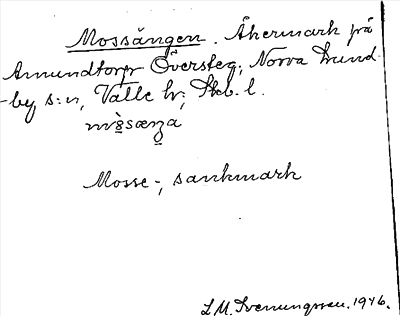 Mossängen. Åkermark på
Amundtorp Översteg, Norra Lund-
-by s:n, Valle hd; Skb. l.
Mosse-, sankmark
L. M. Svenungsson. 1946.